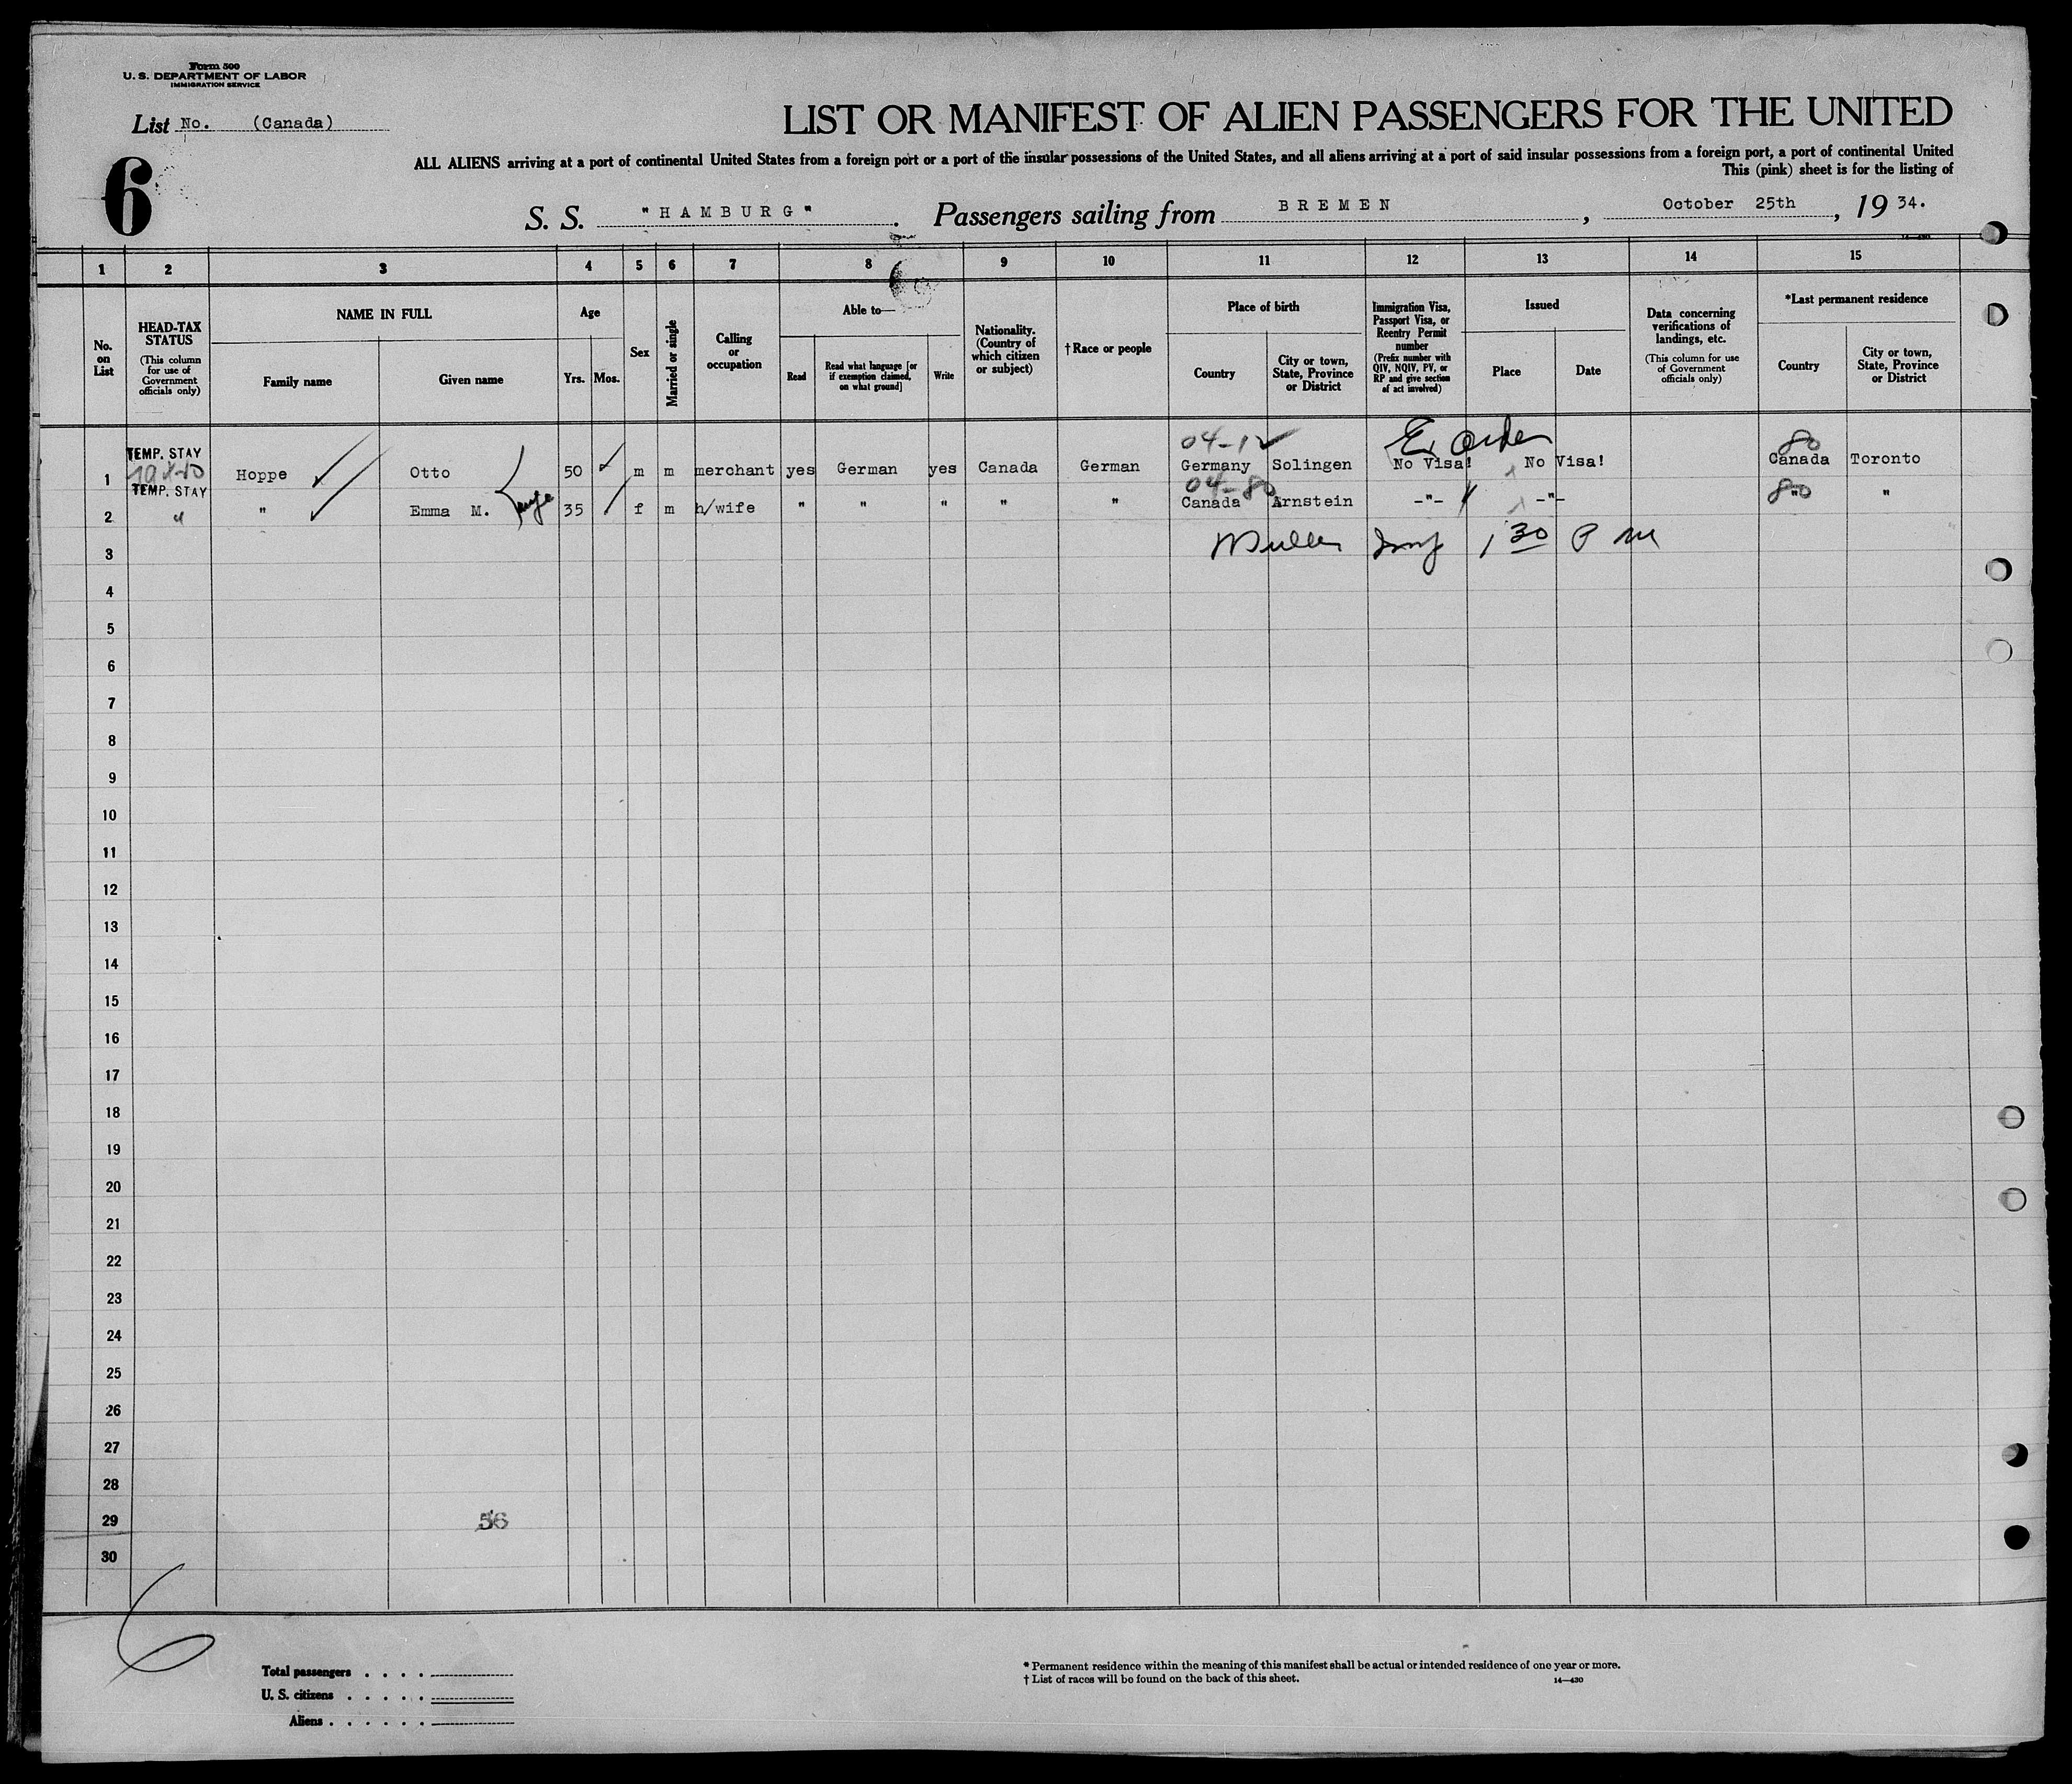 Form 500
U. S. DEPARTMENT OF LABOR
IMMIGRATION SERVICE
List No. (Canada)
LIST OR MANIFEST OF ALIEN PASSENGERS FOR THE UNITED
ALL ALIENS arriving at a port of continental United States from a foreign port or a port of the insular possessions of the United States, and all aliens arriving at a port of said insular possessions from a foreign port, a port of continental United
This (pink) sheet is for the listing of
6
S. S. "HAMBURG". Passengers sailing from BREMEN, October 25th, 1934.
1 2 3 4 5 6 7 8 9 10 11 12 13 14 15
No. on List
HEAD-TAX STATUS
(This column for use of Government officials only)
NAME IN FULL
Family name
Given name
Age
Yrs. Mos.
Sex
Married or single
Calling or occupation
Able to—
Read
Read what language [or if exemption claimed, on what ground]
Write
Nationality. (Country of which citizen or subject)
† Race or people
Place of birth
Country
City or town, State, Province or District
Immigration Visa, Passport Visa, or Reentry Permit number
(Prefix number with QIV, NQIV, PV, or RP and give section of act involved)
Issued
Place
Date
Data concerning verifications of landings, etc.
(This column for use of Government officials only)
*Last permanent residence
Country
City or town, State, Province or District
TEMP. STAY 04-12 Ex Order 80
1 Hoppe Otto 50 m m merchant yes German yes Canada German Germany Solingen No Visa! No Visa! Canada Toronto
TEMP. STAY 04-80 80
2 " " Emma M. 35 f m h/wife " " " " " Canada Arnstein -"- -"- " "
3 Muller 1 30 P M
4
5
6
7
8
9
10
11
12
13
14
15
16
17
18
19
20
21
22
23
24
25
26
27
28
29 56
30
6
Total passengers . . . .
U. S. citizens . . . . .
Aliens . . . . . .
* Permanent residence within the meaning of this manifest shall be actual or intended residence of one year or more.
† List of races will be found on the back of this sheet.
14—430